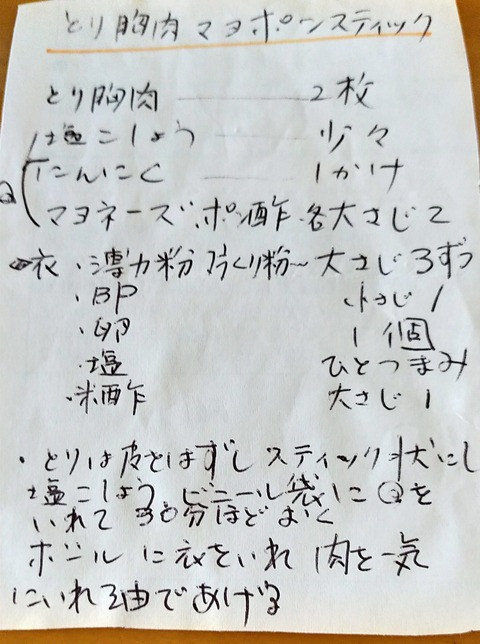 とり胸肉 マヨポンスティック
とり胸肉 ―― 2枚
塩こしょう ―― 少々
にんにく ―― 1かけ
マヨネーズ、ポン酢 各大さじ2
衣・薄力粉 片くり粉〜大さじ3ずつ
・BP 小さじ1
・卵 1個
・塩 ひとつまみ
・米酢 大さじ1
・とりは皮をはずし スティック状にし
塩こしょう、ビニール袋に@を
いれて 30分ほどおく
ボールに衣をいれ 肉を一気
にいれ油であげる